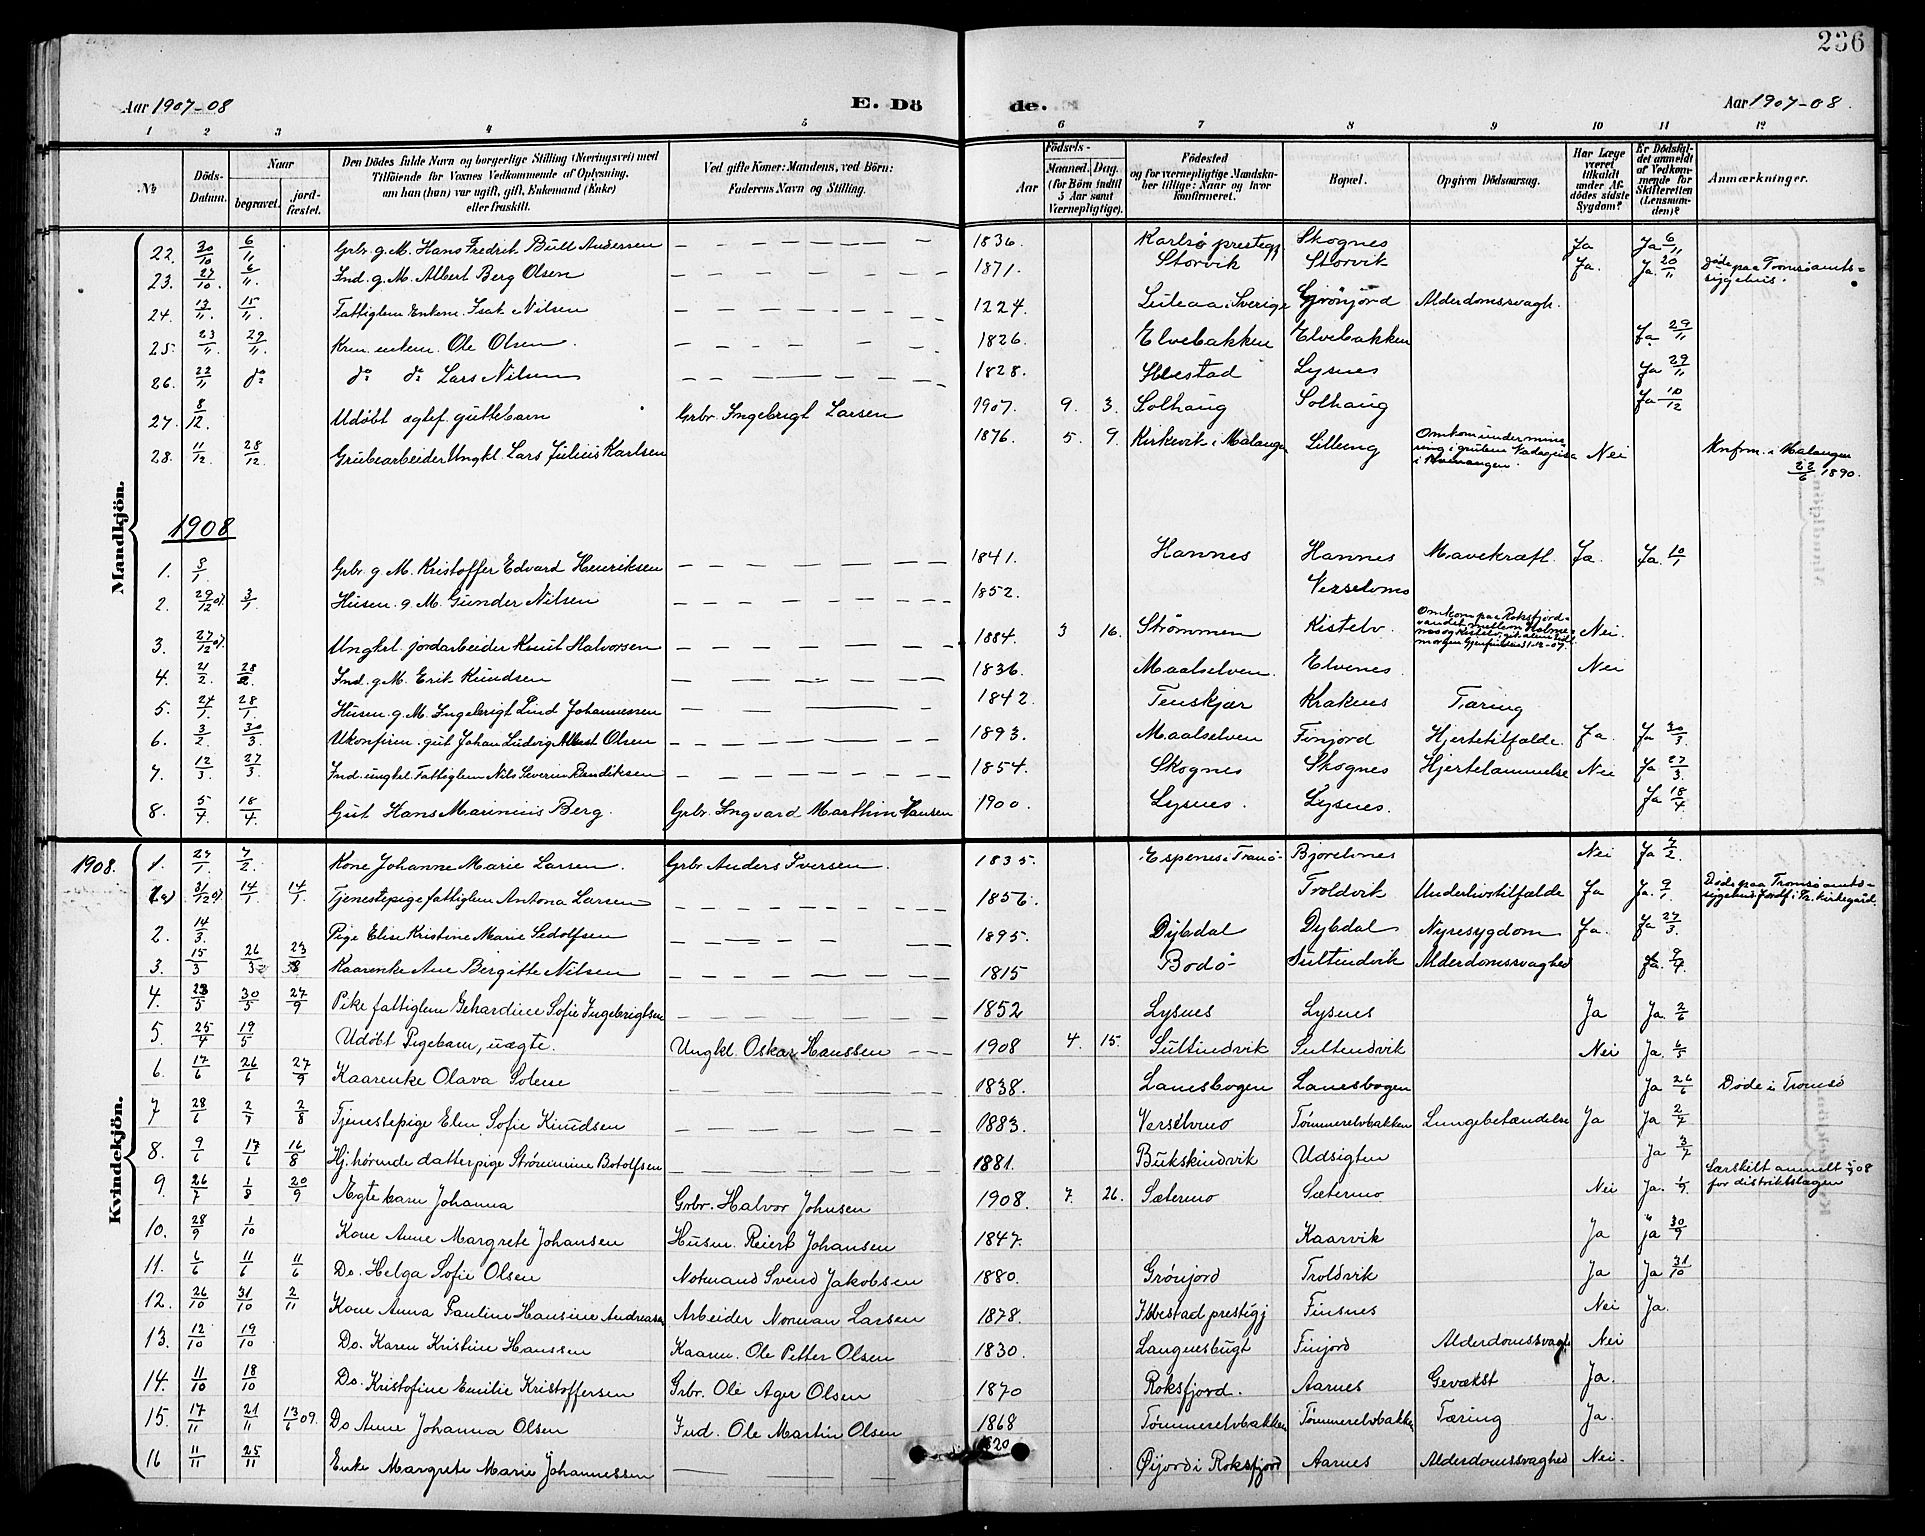 236
Aar 1907-08 E. Dö de. Aar 1907-08.
1 2 3 4 5 6 7 8 9 10 11 12
№ Döds-Datum. Naar begravet. jord-fæstet. Den Dödes fulde Navn og borgerlige Stilling (Næringsvei) med Tilföiende for Voxnes Vedkommende af Oplysning, om han (hun) var ugift, gift, Enkemand (Enke) eller fraskilt. Ved gifte Koner: Mandens, ved Börn: Faderens Navn og Stilling. Födsels- Aar Maaned. Dag. (for Börn indtil 5 Aar samt Værnepligtige). Födested og for værnepligtige Mandskaber tillige: Naar og hvor konfirmeret. Bopæl. Opgiven Dödsaarsag. Har Læge været tilkaldt under Afdödes sidste Sygdom? Er Dödsfaldet anmeldt af Vedkommende for Skifteretten (Lensmanden)? Anmærkninger.
Mandkjön.
22. 30/10 6/11 Grbr. g. M. Hans Fredrik Bull Andersen 1836. Karlsø prestegj. Skognes Ja Ja 6/11
23. 27/10 6/11 Ind. g. M. Albert Berg Olsen 1871. Storvik Storvik Ja. Ja. 20/11 Døde paa Tromsø amts-sygehus.
24. 13/11 15/11 Fattiglem Enkem. Isak Nilsen 1224. Luleaa i Sverige Grønjord Alderdomssvagh.
25. 23/11 29/11 Krm. enkem. Ole Olsen 1826. Elvebakken Elvebakken Ja 29/11
26. 22/11 do do do Lars Nilsen 1828. Ibbestad Lysnes Ja 29/11
27. 8/12. Udøbt ægtef. guttebarn Grbr. Ingebrigt Larsen 1907. 9. 3. Solhaug Solhaug Ja 10/12
28. 11/12 28/12 Grubearbeider Ungkl. Lars Julius Karlsen 1876. 5. 9. Kirkevik i Malangen Lilleng Omkom under mine-ring i gruben i Kvænangen. Nei Knfrm. i Malangen 22/6 1890.
1908
1. 8/1. Grbr. g. M. Kristoffer Edvard Henriksen 1841. Hannes Hannes Mavekræft. Ja. Ja. 10/1
2. 29/12 07 3/1 Husm. g. M. Gunder Nilsen 1852. Vesselvmo
3. 27/12 07 Ungkrl. jordarbeider Knut Halvorsen 1884. 3 16. Strømmen Kistelv. Omkom paa Roksfjord-vandet mellem Holme-nes og Kistelv Nei.
4. 21/2. 28/2. Ind. g. M. Erik Knudsen 1836. Maalselven. Elvenes Nei
5. 24/1 28/1. Husm. g. M. Ingebrigt Lind Johannessen 1842. Tenskjær Kraknes Tæring
6. 3/2 30/3 Ukonfirm. gut Johan Ludvig Albert Olsen 1893. Maalselven Finjord Hjertetilfælde. Ja. Ja 30/3
7. 12/3. 27/3. Ind. ungkl. Fattiglem Nils Severin Bendiksen 1854. Skognes Skognes Hjertelammelse Nei Ja 27/3.
8. 5/4 18/4. Gut Hans Marinius Berg. Grbr. Ingvard Marthin Hansen 1900. Lysnes. Lysnes. Ja 18/4
Kvindekjön.
1908. 1. 27/1 7/2. Kone Johanne Marie Larsen. Grbr. Anders Iversen 1835. Espenes i Tranø Bjorelvnes Nei Ja 7/2.
1 a) 31/12 07 14/1 14/1 Tjenestepige fattiglem Antona Larsen 1856. Troldvik Underlivstilfælde Ja Ja. 9/1. Døde paa Tromsø amts-sygehus Jordf. i Tr. kirkegård.
2. 14/3. Pige Elise Kristine Marie Sedolfsen 1895. Dybdal Dybdal Nyresygdom Ja. Ja 27/3.
3. 15/3 26/3 23/8 Kaarenke Ane Bergitte Nilsen 1815 Bodø Sultindvik Alderdomssvaghed Ja. 9/4.
4. 23/5 30/5 27/9 Pike fattiglem Gehardine Sofie Ingebrigtsen 1852 Lysnes Lysnes Ja Ja. 2/6
5. 25/4 19/5 Udøbt Pigebarn, uægte. Ungkl. Oskar Hanssen 1908 4. 15. Sultindvik Sultindvik Nei Ja. 6/5
6. 17/6 26/6 27/9 Kaarenke Olava Solem 1838. Lanesbogen Lanesbogen Ja 26/6 Døde i Tromsø
7 28/6 2/7 2/8 Tjenestepige Elen Sofie Knudsen 1883. Verselvmo Tømmerelvbakken Lungebetændelse Ja Ja 2/7
8. 9/6 17/6 16/8 Hj. hørende datter pige Strømmine Botolfsen 1881. Bukskindvik Udsigten Ja 3/7
9. 26/7 1/8 20/9 Ægte barn Johanna Grbr. Halvor Johnsen 1908. 7. 26. Sætermo Sætermo Nei Ja. Særskilt anmelt 08 for distriktslægen
10. 28/9 1/10 Kone Anne Margrete Johansen Husm. Reiert Johansen 1847. Kaarvik Ja ja 30/9
11. 6/6 11/6 11/6 Do. Helga Sofie Olsen Notmand Svend Jakobsen 1880. Grønjord Troldvik Ja Ja 31/10
12. 26/10 31/10 2/11 Kone Anna Pauline Hansine Andreasen Arbeider Norman Larsen 1878. Ibbestad prestegj Finsnes Nei Ja.
13. 12/10 19/10 Do. Karen Kristine Hanssen Kaarm. Ole Petter Olsen 1830. Langnesbugt Finjord Alderdomssvagh Nei
14. 11/10 18/10 Do. Kristofine Emilie Kristoffersen Grbr. Ole Ager Olsen 1870 Roksfjord. Aarnes Gevækst Ja.
15. 17/11 21/11 13/6 09. Do Anne Johanna Olsen Ind. Ole Martin Olsen 1868 Tømmerelvbakken Tømmerelvbakken Tæring Ja.
16 11/11 25/11 Enke Margrete Marie Johannessen 1820 Øijord i Roksfjord Aarnes Alderdomssvaghed Nei